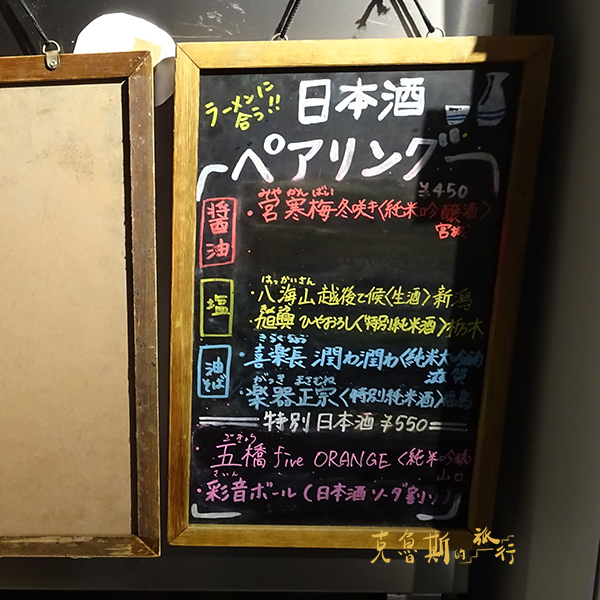 ラーメンに
合う!!
日本酒
ペアリング
¥450
醤油
みやかんばい
・宮寒梅 冬咲き〈純米吟醸酒〉
宮城
塩
はっかいさん
・八海山 越後で候〈生酒〉新潟
ひやおろし〈特別純米酒〉栃木
油そば
きらくちょう
・喜楽長 潤わ潤わ〈純米大吟醸〉
滋賀
がっきまさむね
・楽器正宗〈特別純米酒〉福島
特別日本酒 ¥550
ごきょう
・五橋 five ORANGE〈純米吟醸〉
山口
さいん
・彩音ボール(日本酒ソーダ割り)
克魯斯的旅行